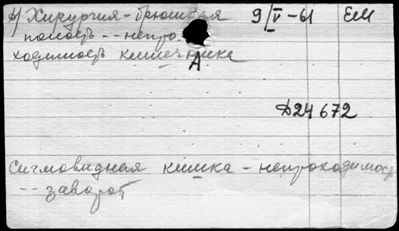 н) Хирургия - брюшная 9/V-61 ЕМ
полость -- непро
ходимость кишечника
А
Д24672
Сигмовидная кишка - непроходимос
-- заворот